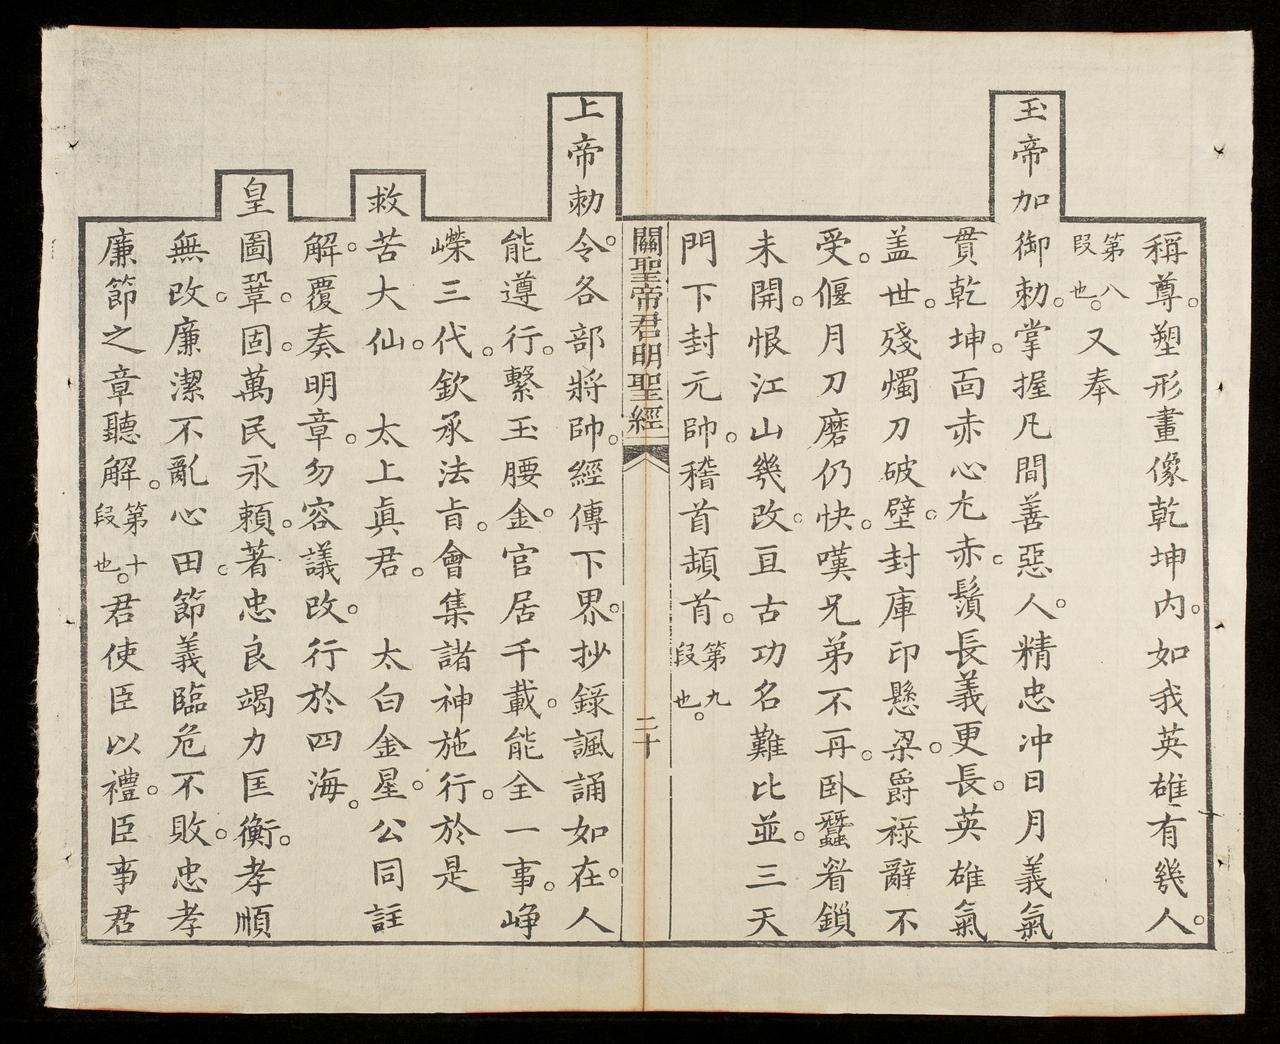 稱尊。塑形畫像乾坤內。如我英雄有幾人。
第八段也。又奉
玉帝加御勅。掌握凡間善惡人。精忠冲日月義氣
貫乾坤。面赤心尤赤。鬚長義更長。英雄氣
盖世。殘燭刀破壁。封庫印懸梁。爵祿辭不
受。偃月刀磨仍快。嘆兄弟不再。臥蠶眉鎖
未開。恨江山幾改。亘古功名難比並。三天
門下封元帥。稽首頓首。第九段也。
關聖帝君明聖經
二十
上帝勅令。各部將帥。經傳下界。抄錄諷誦如在。人
能遵行。繫玉腰金。官居千載。能全一事。崢
嶸三代。欽承法旨。會集諸神施行。於是
救苦大仙。太上眞君。太白金星。公同註
解。覆奏明章。勿容議改。行於四海。
皇圖鞏固。萬民永賴。著忠良竭力匡衡。孝順
無改。廉潔不亂心田。節義臨危不敗。忠孝
廉節之章聽解。第十段也。君使臣以禮。臣事君